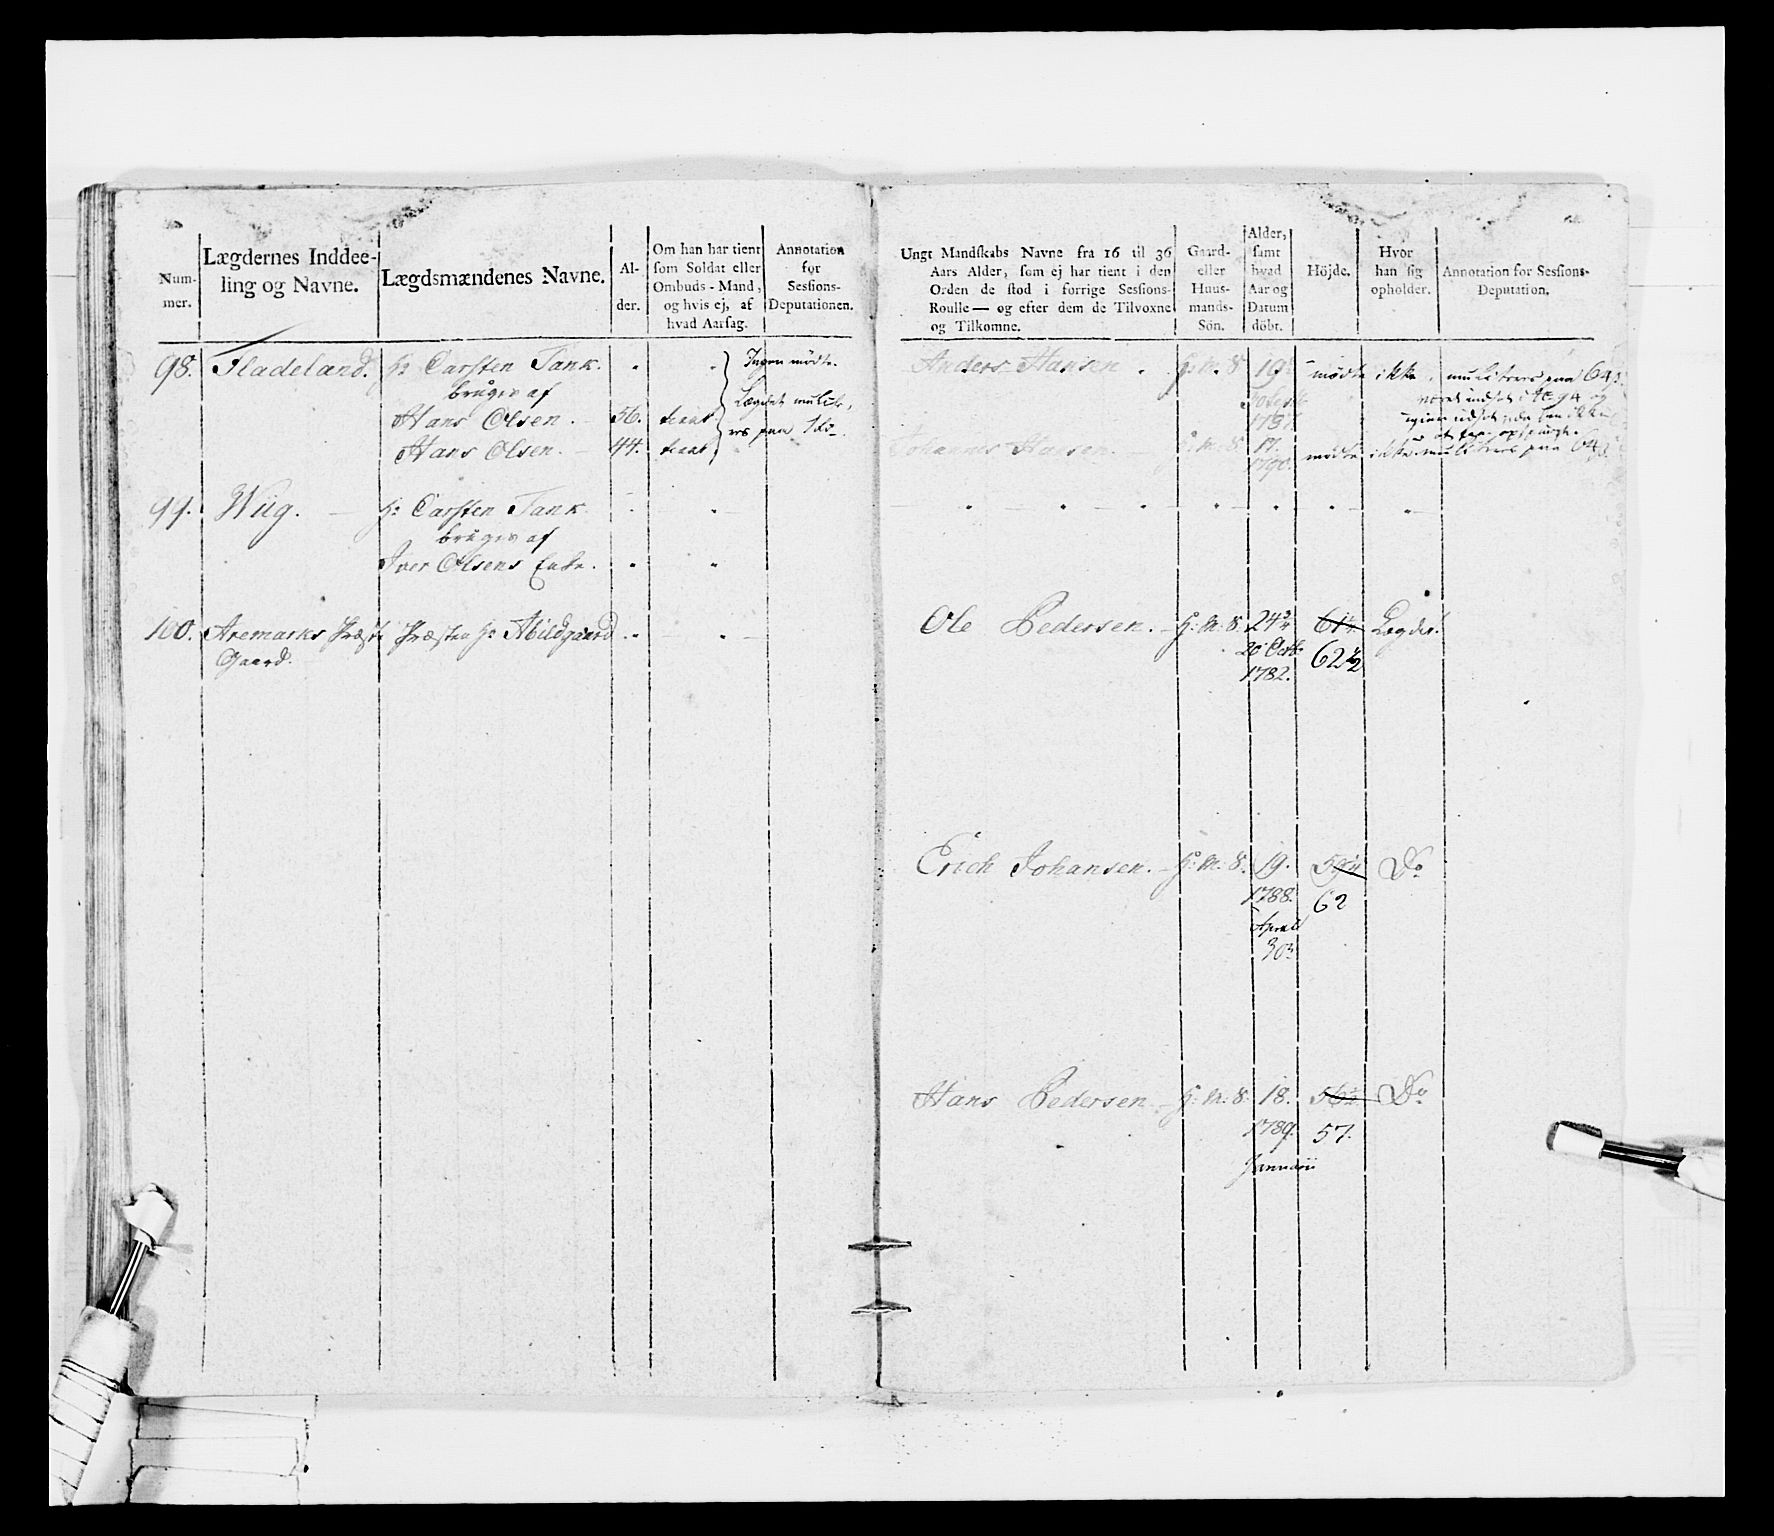 Num-
mer.
Lægdernes Inddee-
ling og Navne.
Lægdsmændenes Navne.
Al-
der.
Om han har tient
som Soldat eller
Ombuds-Mand,
og hvis ej, af
hvad Aarsag.
Annotation
for
Sessions-
Deputationen.
98. Fladeland.
Hr Carsten Tank.
bruges af
Hans Olsen. 56. tient
Hans Olsen. 44. tient
Ingen mødte.
Lægdet mulcte,
res paa 1
99. Wiig.
Hr Carsten Tank
bruges af
Iver Olsens Enke.
100. Aremarks Præste
Gaard.
Præsten Hr Abildgaard
Ungt Mandskabs Navne fra 16 til 36
Aars Alder, som ej har tient i den
Orden de stod i forrige Sessions-
Roulle — og efter dem de Tilvoxne
og Tilkomne.
Gaard-
eller
Huus-
mands-
Sön.
Alder,
samt
hvad
Aar og
Datum
döbt.
Höjde.
Hvor
han sig
opholder.
Annotation for Sessions-
Deputation.
Anders Hansen 19 mødte ikke, mulcteres paa 64
Johannes Hansen. 17. mødte ikke mulcteres paa 64
1790.
Ole Pedersen. H: M: S: 24 61 Lægdet.
26 Octb 62½
1782.
Erich Johansen. H: M: S. 19. 59 Do
1788. 62
April
30
Hans Pedersen H: M: S: 18. 56 Do
1789. 57.
Januarii